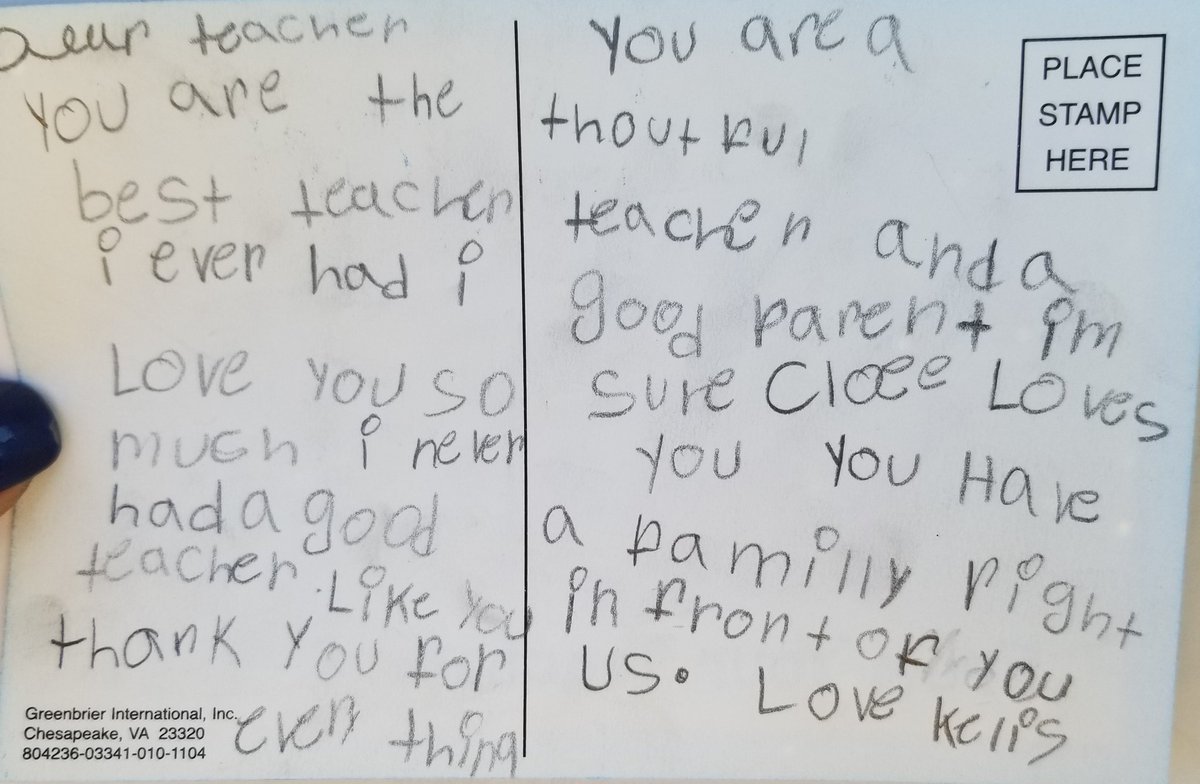 Dear teacher
you are the
best teacher
i ever had i
Love you so
much i never
had a good
teacher Like you
thank you for
every thing
Greenbrier International, Inc.
Chesapeake, VA 23320
804236-03341-010-1104
you are a
thoutful
teacher and a
good parent im
sure Cloee Loves
you you Have
a familly right
in front of you
us. Love kellis
PLACE
STAMP
HERE